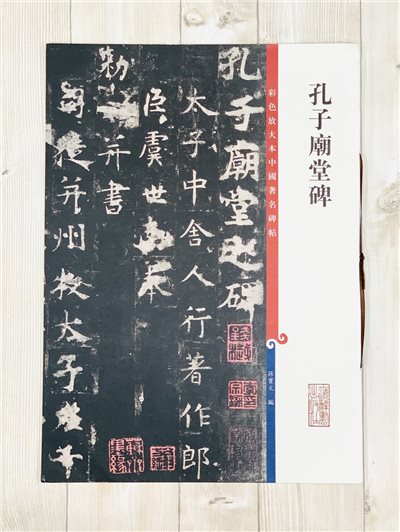 孔子廟堂碑
彩色放大本中國著名碑帖
孫寶文 編
孔子廟堂之碑
太子中舍人行著作郎
臣虞世南奉
勑
并書
司徒并州牧太子左千